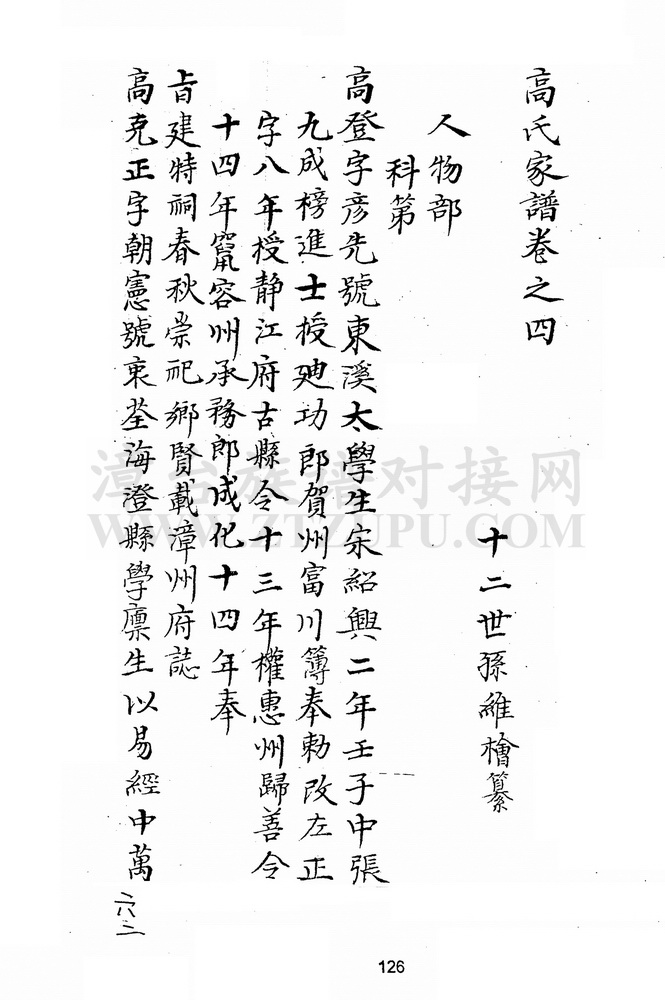 高氏家譜卷之四
十二世孫維檜纂
人物部
科第
高登字彥先號東溪太學生宋紹興二年壬子中張
九成榜進士授廸功郎賀州富川簿奉勅改左正
字八年授静江府古縣令十三年權惠州歸善令
十四年竄容州承務郎成化十四年奉
旨建特祠春秋崇祀鄉賢載漳州府誌
高克正字朝憲號朿荃海澄縣學廪生以易經中萬
六二
漳台族譜对接网
WWW.ZTZUPU.COM
126